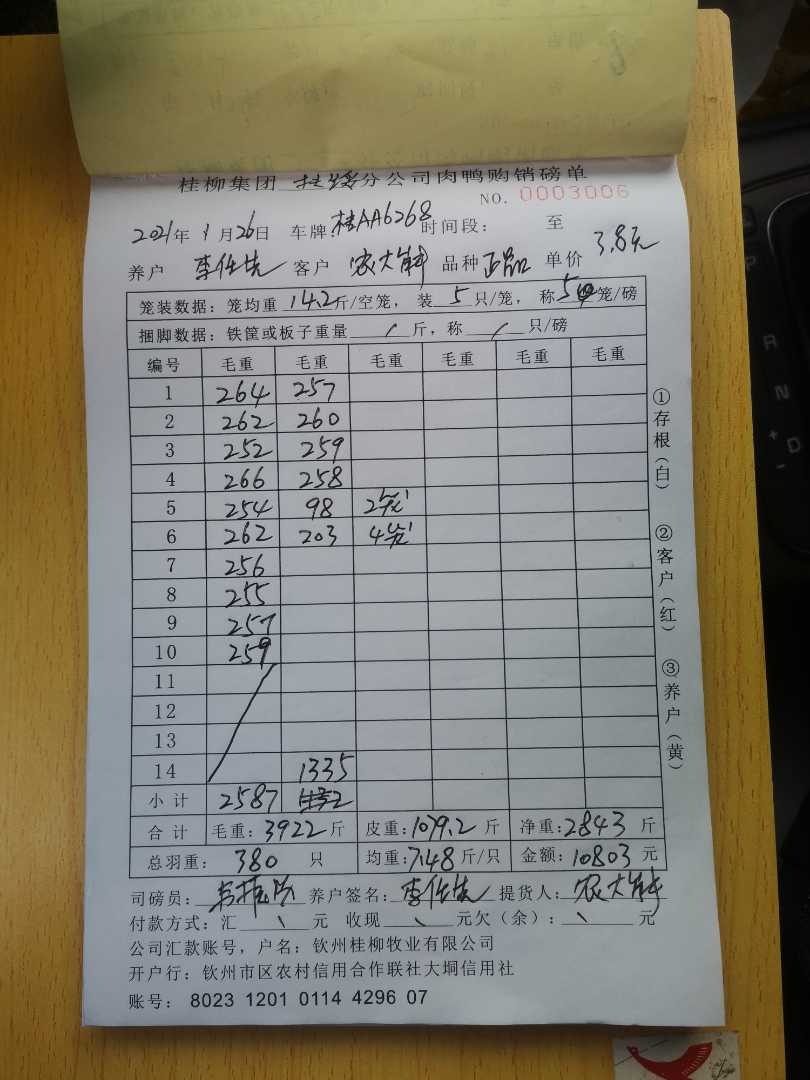 桂柳集团 分公司肉鸭购销磅单
NO. 0003006
2021年 1月26日 车牌:桂AA6268 时间段: 至
养户 李仕 客户 农大 品种 正品 单价 3.8元
笼装数据: 笼均重 14.2 斤/空笼, 装 5 只/笼, 称 5 笼/磅
捆脚数据: 铁筐或板子重量 / 斤, 称 / 只/磅
编号 毛重 毛重 毛重 毛重 毛重 毛重
1 264 257
2 262 260
3 252 259
4 266 258
5 254 98 2笼
6 262 203 4笼
7 256
8 255
9 257
10 259
11
12
13
14 1335
小计 2587
合计 毛重: 3922 斤 皮重: 1079.2 斤 净重: 2843 斤
总羽重: 380 只 均重: 7.48 斤/只 金额: 10803 元
司磅员: 养户签名: 李仕 提货人: 农大
付款方式: 汇 \ 元 收现 \ 元欠(余): \ 元
公司汇款账号, 户名: 钦州桂柳牧业有限公司
开户行: 钦州市区农村信用合作联社大垌信用社
账号: 8023 1201 0114 4296 07
①存根(白) ②客户(红) ③养户(黄)
R
N
+
D
-